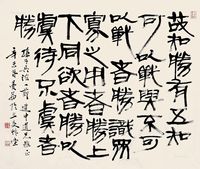 故知勝有五
可以戰與不可
以戰者勝識眾
寡之用者勝
上下同欲者勝以
虞待不虞者
勝
孫子兵法一則